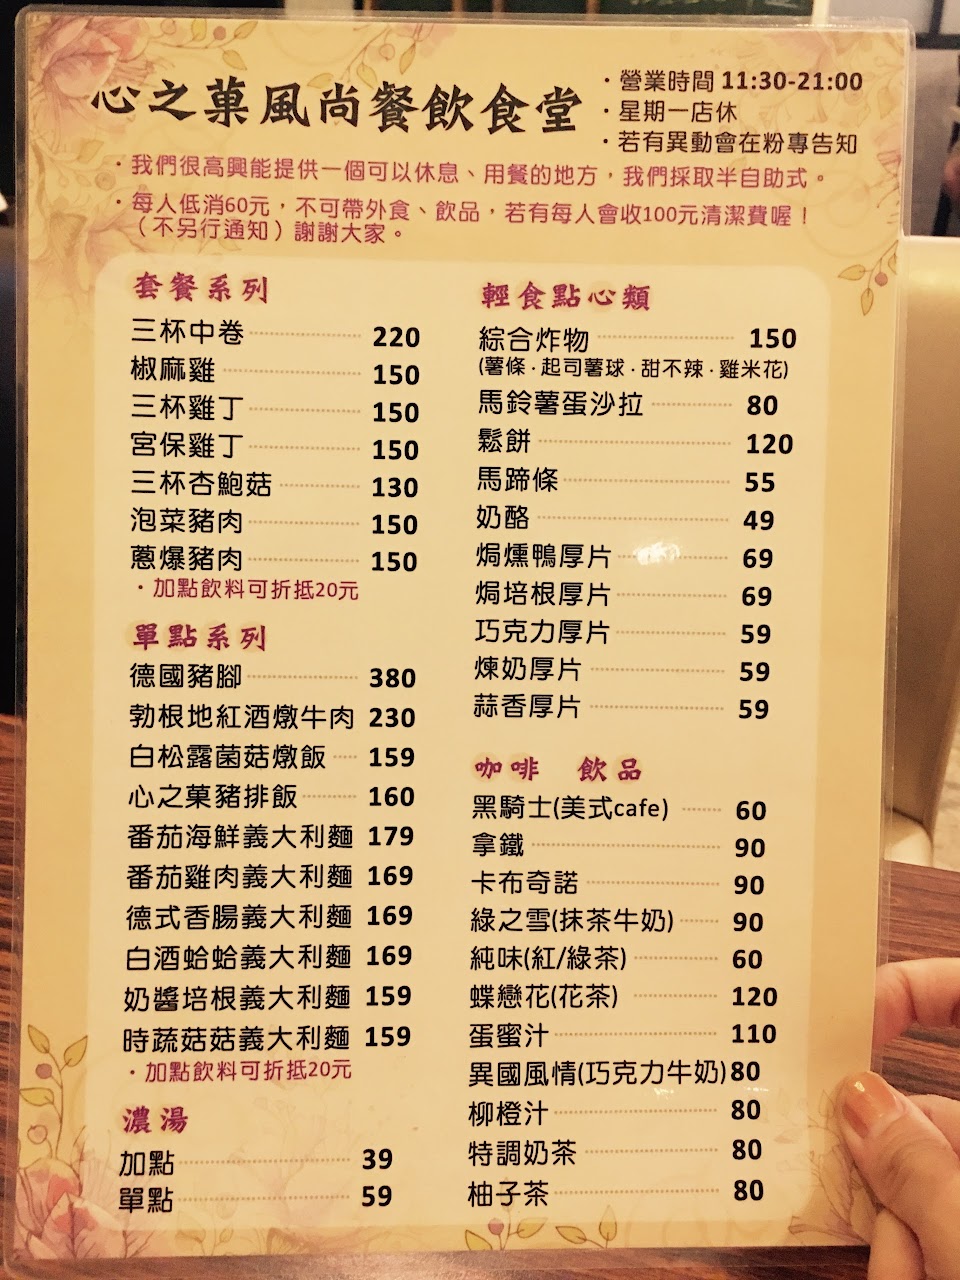 心之菓風尚餐飲食堂
・營業時間 11:30-21:00
・星期一店休
・若有異動會在粉專告知
・我們很高興能提供一個可以休息、用餐的地方，我們採取半自助式。
・每人低消60元，不可帶外食、飲品，若有每人會收100元清潔費喔！
（不另行通知）謝謝大家。
套餐系列
三杯中卷 220
椒麻雞 150
三杯雞丁 150
宮保雞丁 150
三杯杏鮑菇 130
泡菜豬肉 150
蔥爆豬肉 150
・加點飲料可折抵20元
單點系列
德國豬腳 380
勃根地紅酒燉牛肉 230
白松露菌菇燉飯 159
心之菓豬排飯 160
番茄海鮮義大利麵 179
番茄雞肉義大利麵 169
德式香腸義大利麵 169
白酒蛤蛤義大利麵 169
奶醬培根義大利麵 159
時蔬菇菇義大利麵 159
・加點飲料可折抵20元
濃湯
加點 39
單點 59
輕食點心類
綜合炸物 150
(薯條·起司薯球·甜不辣·雞米花)
馬鈴薯蛋沙拉 80
鬆餅 120
馬蹄條 55
奶酪 49
焗燻鴨厚片 69
焗培根厚片 69
巧克力厚片 59
煉奶厚片 59
蒜香厚片 59
咖啡 飲品
黑騎士(美式cafe) 60
拿鐵 90
卡布奇諾 90
綠之雪(抹茶牛奶) 90
純味(紅/綠茶) 60
蝶戀花(花茶) 120
蛋蜜汁 110
異國風情(巧克力牛奶) 80
柳橙汁 80
特調奶茶 80
柚子茶 80